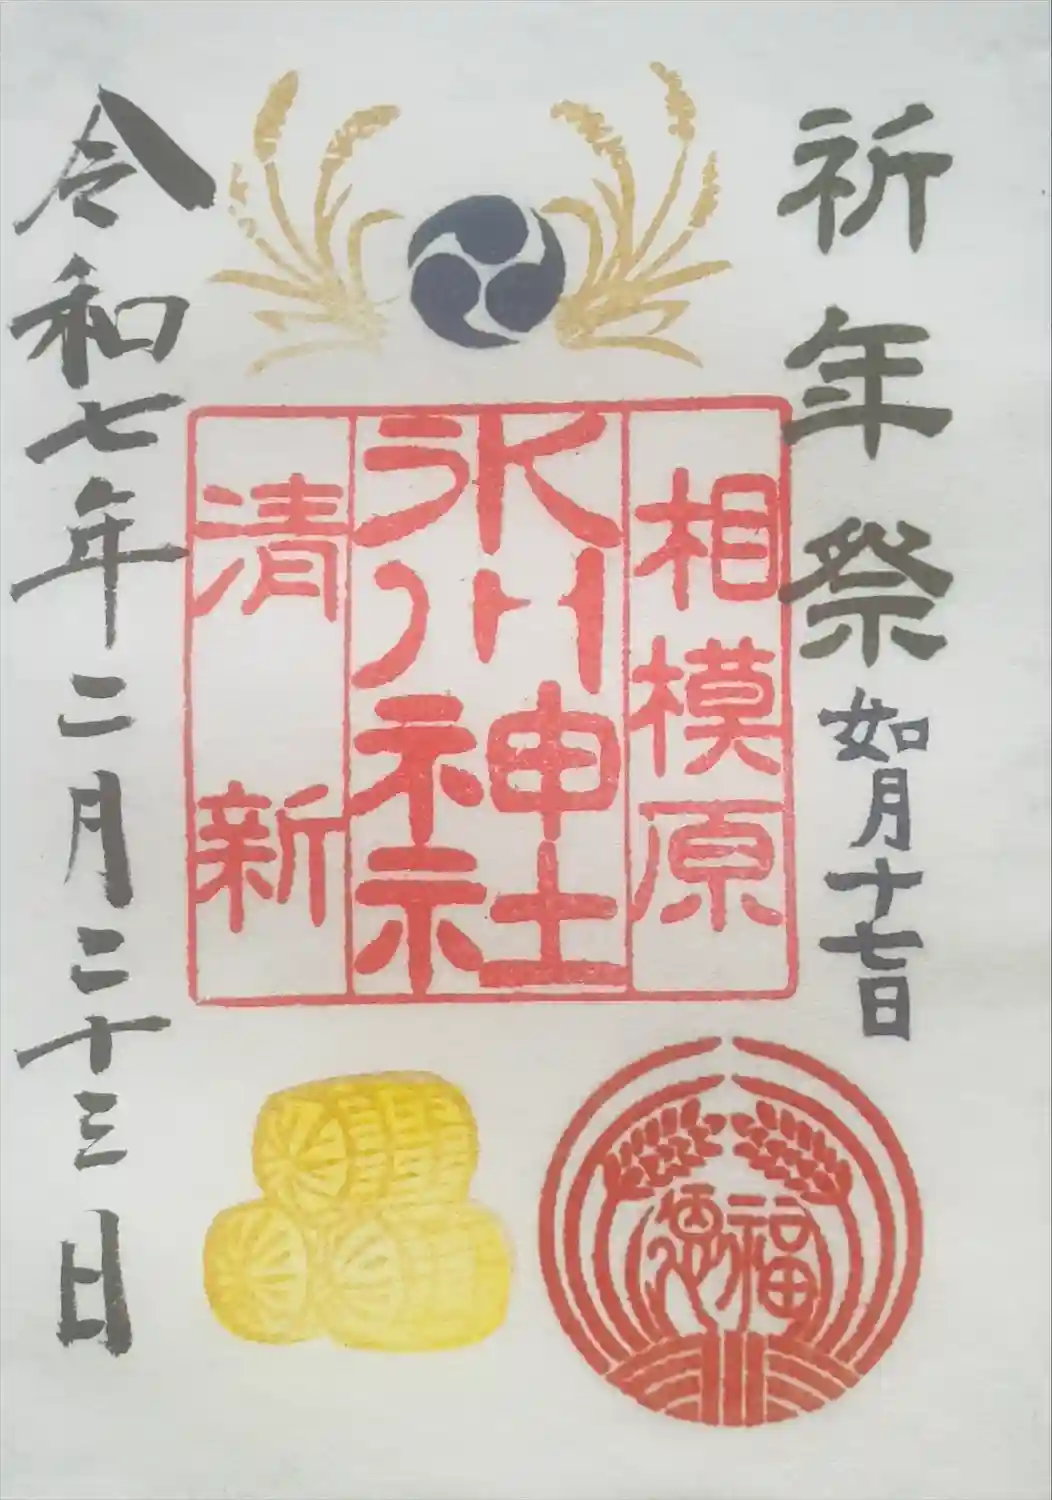 祈年祭
如月十七日
相模原
氷川神社
清新
令和七年二月二十三日
福